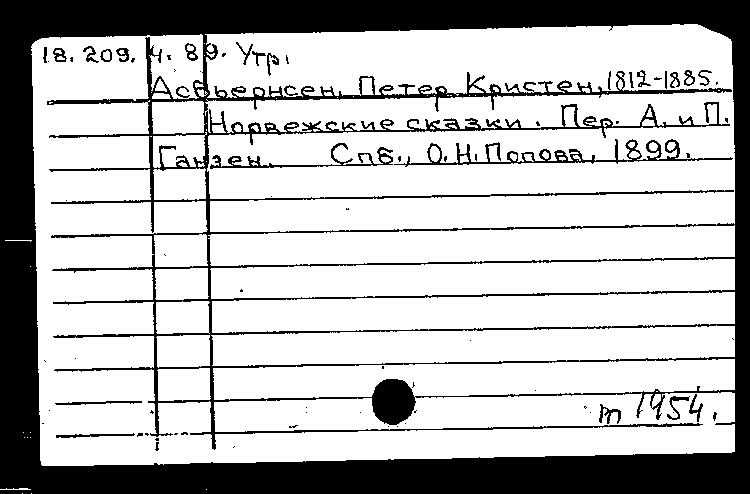 18. 209. 4. 89. Утр.
Асбьернсен, Петер Кристен, 1812-1885.
Норвежские сказки. Пер. А. и П.
Ганзен. Спб., О.Н. Попова, 1899.
т 1954.